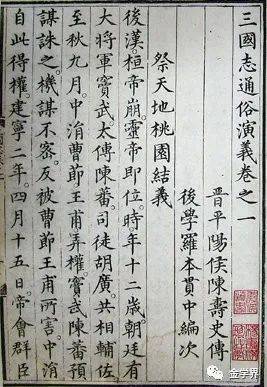 三國志通俗演義卷之一
晋平陽侯陳壽史傳
後學羅本貫中編次
祭天地桃園結義
後漢桓帝崩靈帝即位時年十二歲朝廷有
大將軍竇武太傅陳蕃司徒胡廣共相輔佐
至秋九月中涓曹節王甫弄權竇武陳蕃預
謀誅之機謀不密反被曹節王甫所害中涓
自此得權建寧二年四月十五日帝會群臣
金学界